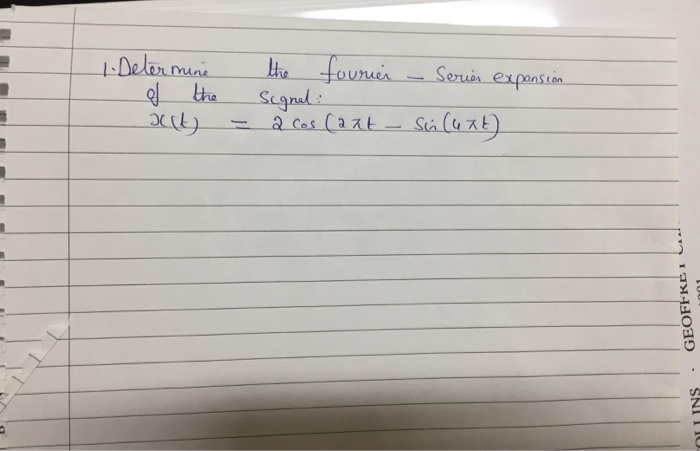 1. Determine the fourier - Series expansion
of the signal:
x(t) = 2 cos (2πt - Sin (4πt)
GEOFFREY
OLLINS